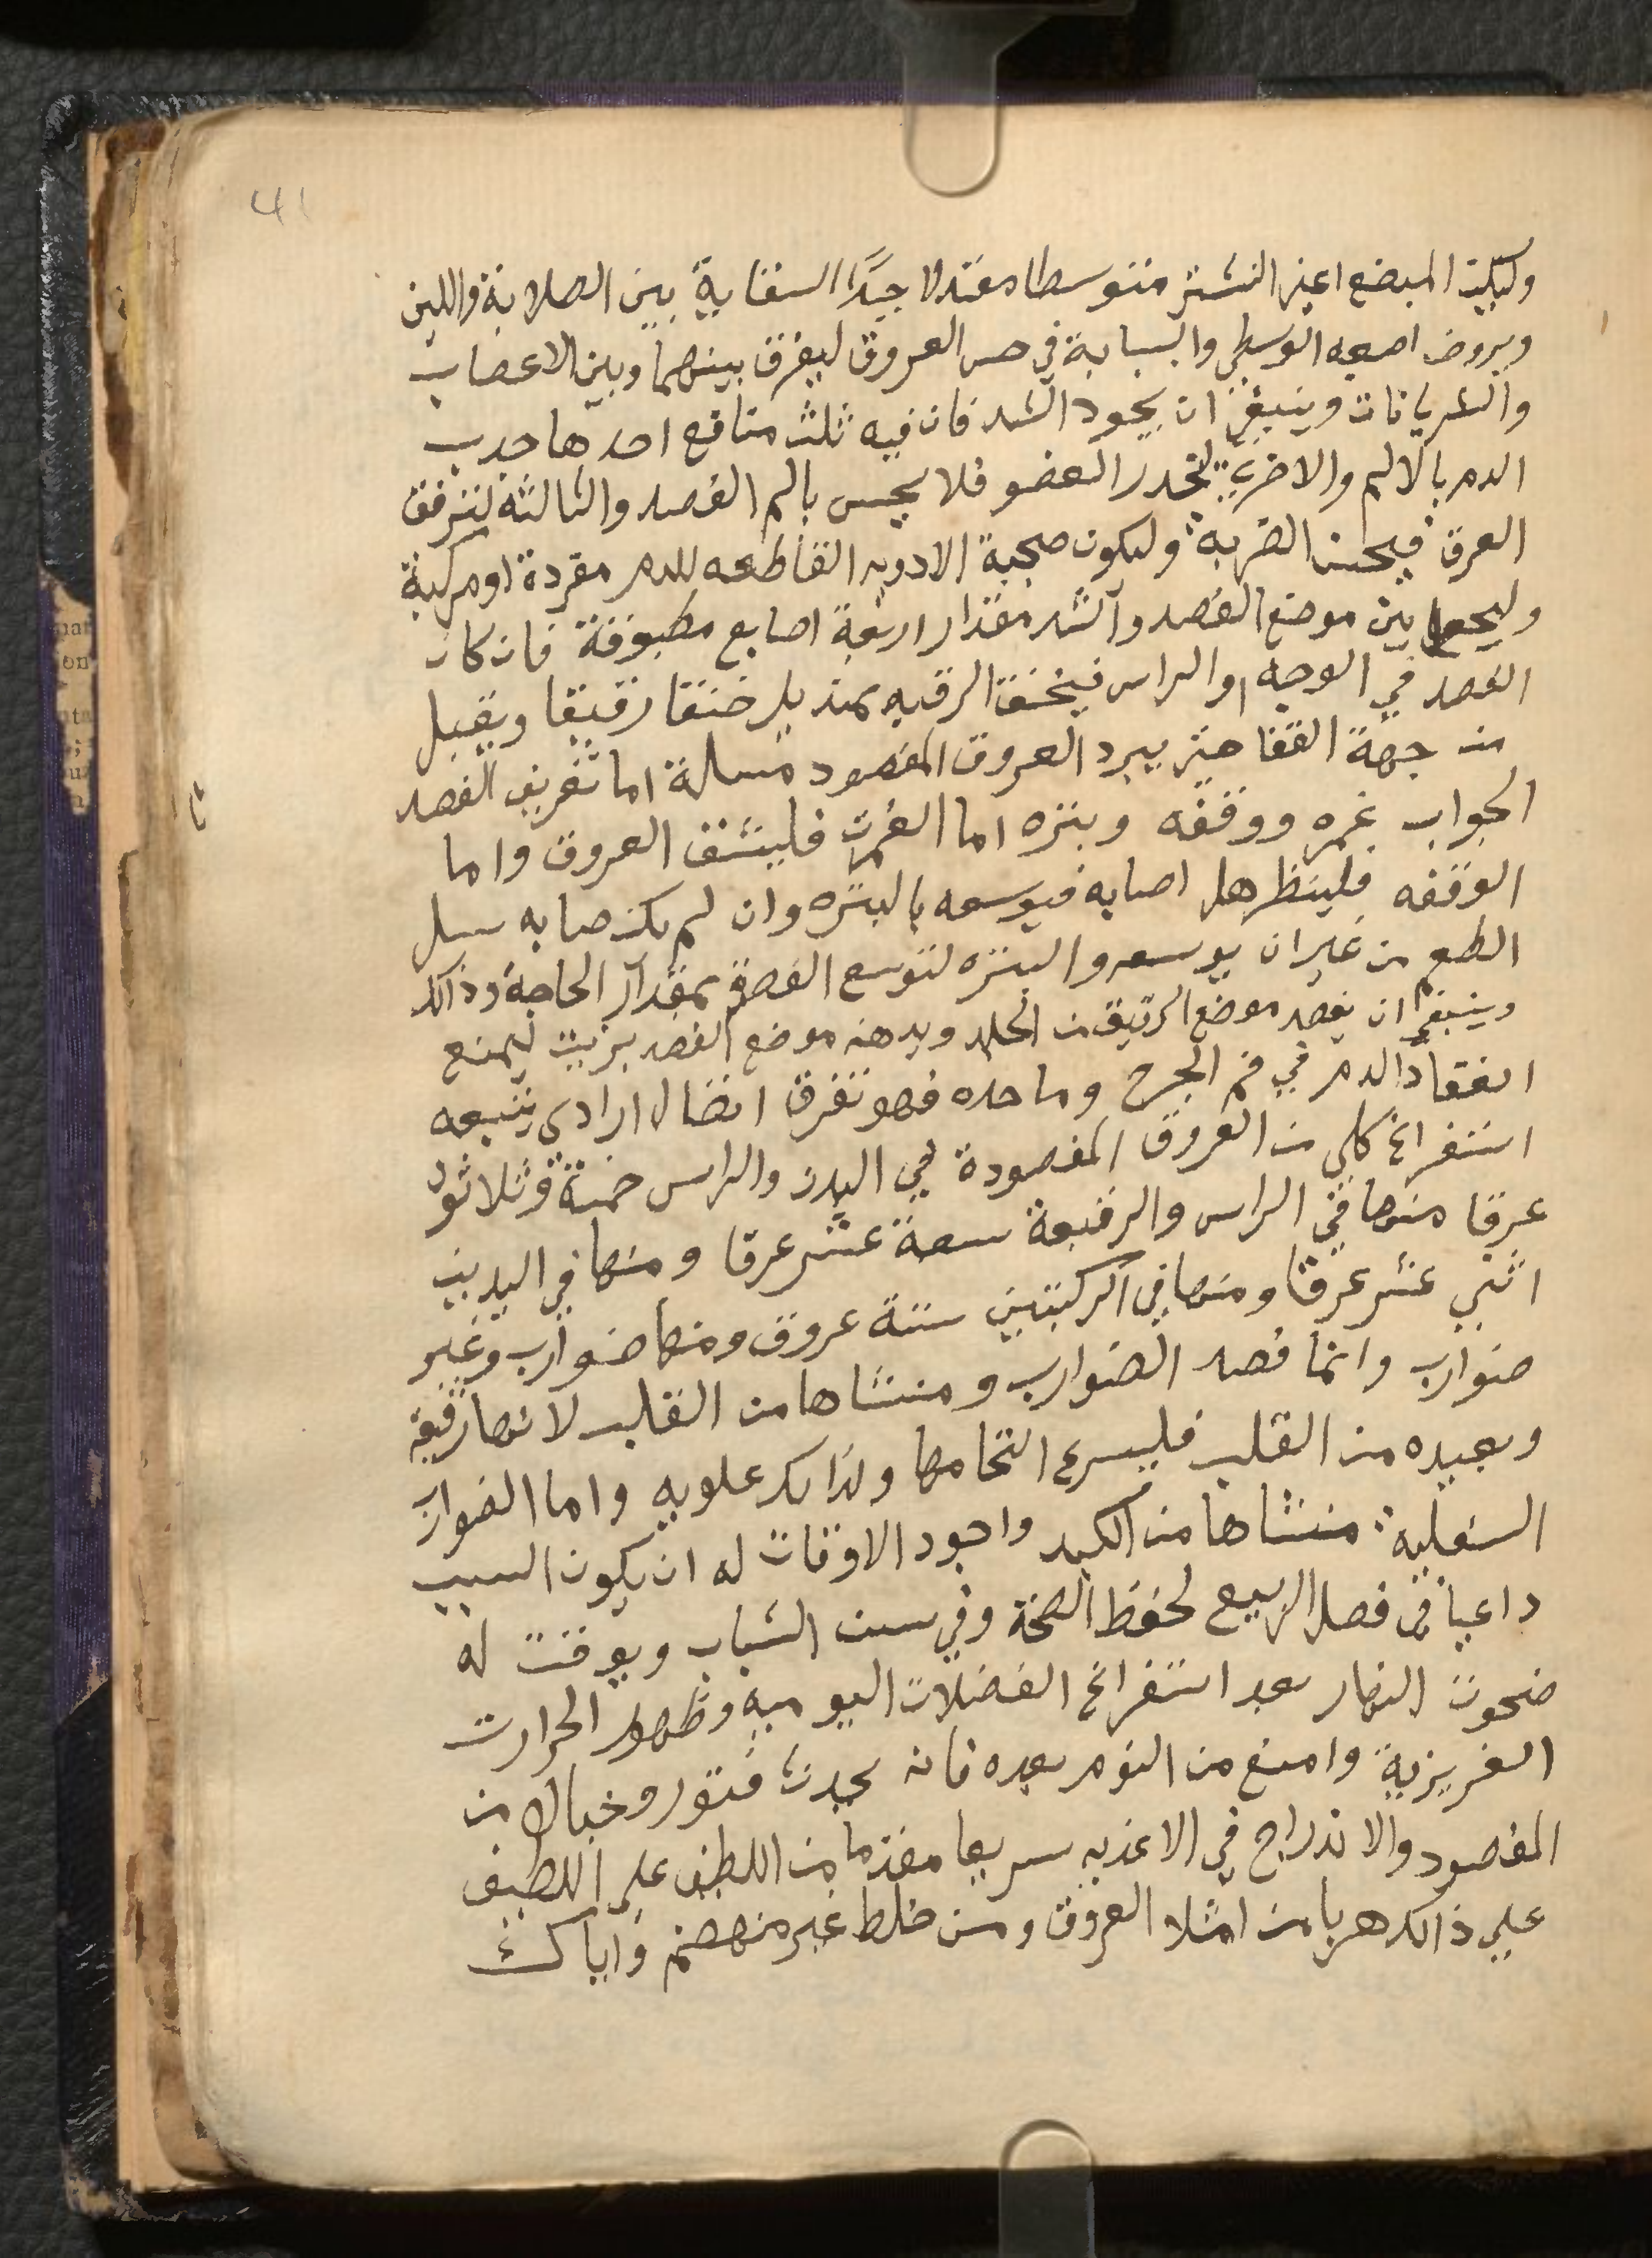 41
وليكن المبضع اعني النشتر متوسطا معتدلا جيدًا السقاية بين الصلابة واللين
ويروض اصبعه الوسطي والسبابة في حس العروق ليفرق بينهما وبين الاعصاب
والشريانات وينبغي ان يجود الشد فان فيه ثلث منافع احدها جدب
الدم بالالم والاخري تخدر العضو فلا يحس بالم الفصد والثالثة لتترقق
العرق فيحسن الضربه وليكون صحبة الادويه القاطعه للدم مفردة او مركبة
وليجعل بين موضع الفصد والشد مقدار اربعة اصابع مطبوقة فان كان
الفصد في الوجه او الراس فيخنق الرقبه بمنديل خنقا رقيقا ويقبل
من جهة القفا حتي يبرد العروق المفصود مسالة اما تعريف الفصد
الجواب غمزه ووقفه وبتره اما الغمزت فلينشق العروق واما
الوقفه فلينظر هل اصابه فيوسعه بالبتره وان لم يكن صابه سل
الطعم من غير ان يوسعه والبتره لتوسع الفصدة بمقدار الحاجة وذالك
وينبغي ان يفصد موضع الرقيق من الجلد ويدهن موضع الفصد بزيت ليمنع
انعقاد الدم في فم الجرح وما حده فهو تفرق اتصال ارادي يتبعه
استفراغ كلي من العروق المفصودة في البدن والراس خمسة وثلاثون
عرقا منها في الراس والرقبة سبعة عشر عرقا ومنها في اليدين
اثني عشر عرقا ومنها في الركبتين ستة عروق ومنها ضوارب وغير
ضوارب وانما فصد الضوارب ومنشاها من القلب لانها رقيقة
وبعيده من القلب فليسرع التحامها ولذالك علويه واما الضوارب
السفلية منشاها من الكبد واجود الاوقات له ان يكون السبب
داعيا في فصل الربيع لحفظ الصحة وفي سن الشباب ويوقت له
ضحوت النهار بعد استفراغ الفضلات اليوميه وظهور الحرارت
الغريزية وامنع من النوم بعده فانه يحدث فتور وخبالا من
المفصود والاندراج في الاغذيه سريعا مقدما من اللطيف علي اللطيف
علي ذالك هربا من امتلا العروق ومن خلط غير منهضم واياك